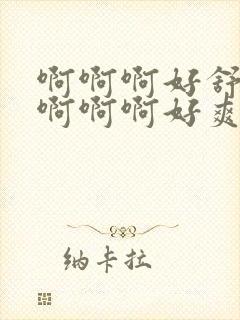 啊啊啊好舒
啊啊啊好爽
纳卡拉